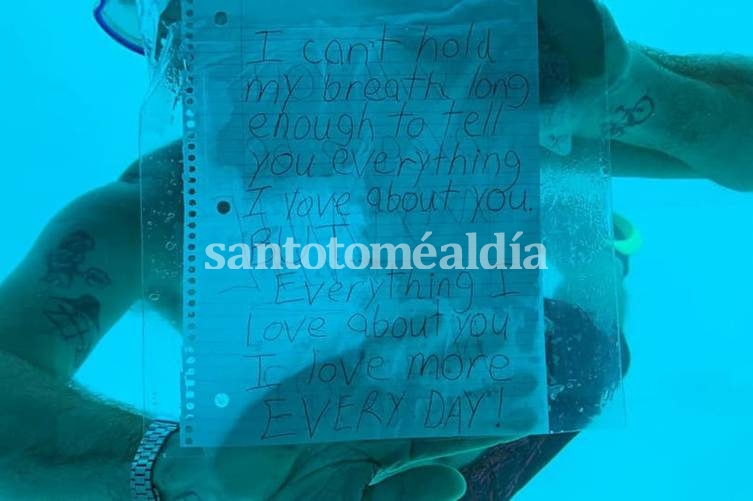 I can't hold
my breath long
enough to tell
you everything
I love about you.
BUT
santotoméaldía
Everything I
Love about you
I love more
EVERY DAY!